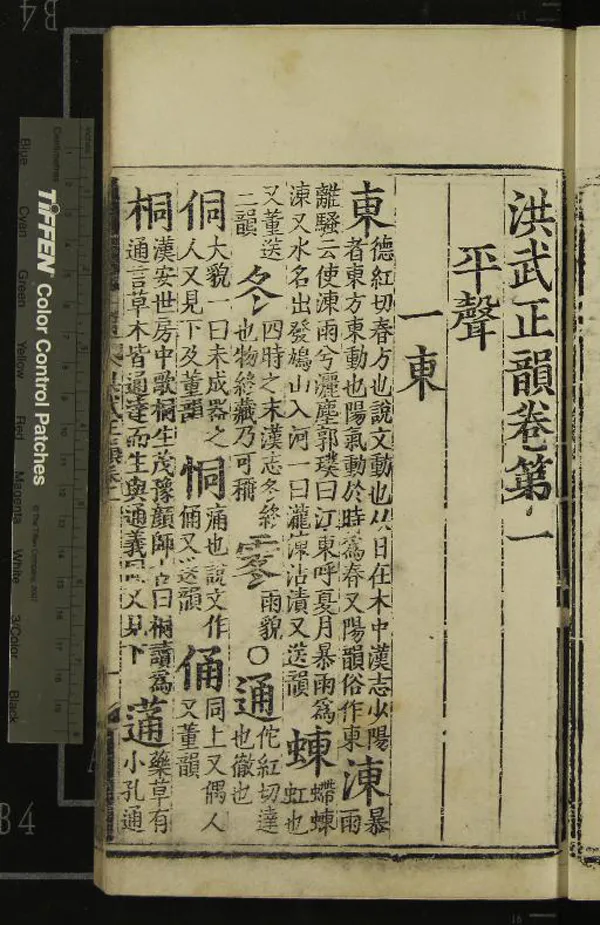 洪武正韻卷第一
平聲
一東
東德紅切春方也說文動也从日在木中漢志少陽者東方東動也陽氣動於時爲春又陽韻俗作東涷暴雨
離騷云使涷雨兮灑塵郭璞曰江東呼夏月暴雨爲涷又水名出發鳩山入河一曰瀧涷沾漬又送韻蝀螮蝀虹也
又董送二韻冬四時之末漢志冬終也物終藏乃可稱零雨貌〇通佗紅切達也徹也
侗大貌一曰未成器之人又見下及董韻恫痛也說文作俑又送韻俑同上又偶人又董韻
桐漢安世房中歌桐生茂豫顏師古曰桐讀爲通言草木皆通達而生與通義同又見下蓪藥草有小孔通
TIFFEN Color Control Patches
© The Tiffen Company, 2007
Centimetres
Inches
Blue
Cyan
Green
Yellow
Red
Magenta
White
3/Color
Black
B4
B4
16